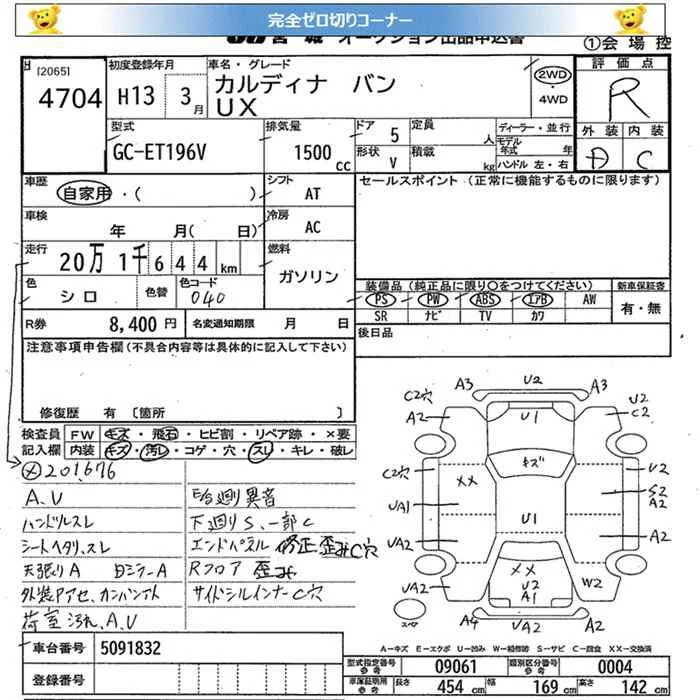 完全ゼロ切りコーナー
オークション出品申込書
①会場控
[2065]
4704
初度登録年月
H13 3月
車名・グレード
カルディナ バン
UX
2WD
・4WD
評価点
R
外装 内装
D C
型式
GC-ET196V
排気量
1500cc
ドア 5
定員 人
形状 V
積載 kg
ディーラー・並行
モデル年式 年
ハンドル 左・右
車歴
自家用・( )
シフト
AT
セールスポイント (正常に機能するものに限ります)
車検
年 月( 日)
冷房
AC
走行
20万1千644km
燃料
ガソリン
色
シロ
色替
色コード
040
装備品 (純正品に限り○をつけてください)
新車保証書
PS PW ABS エアB AW
SR ナビ TV カワ
有・無
R券 8,400円
名変通知期限 月 日
後日品
注意事項申告欄(不具合内容等は具体的に記入して下さい)
修復歴 有 〔箇所 〕
検査員記入欄
FW キズ・飛石・ヒビ割・リペア跡・×要
内装 キズ・汚レ・コゲ・穴・スレ・キレ・破レ
201,676
A.U
ハンドルスレ
シートヘタリ,スレ
天張りA 日ジラーA
外装Pアセ、カンバンアト
荷室汚れ、A.U
E/G廻り異音
下廻りS、一部C
エンドパネル 修正歪みC穴
Rフロア 歪み
サイドシルインナーC穴
C2穴 A3 U2 A3 U2
A2 U1 C2
C2穴 キズ U2
XX S2
UA1 A2
U1
UA2 A2
XX W2
UA2 U2
A1
A4 UA2 A2
スペア
A−キズ E−エクボ U−凹み W−補修跡 S−サビ C−腐食 XX−交換済
車台番号 5091832
登録番号
型式指定番号 参考 09061
類別区分番号 参考 0004
車庫証明用 参考 長さ 454cm 幅 169cm 高さ 142cm